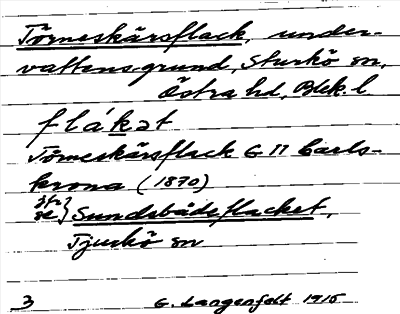 Törneskärsflack, under-
vattensgrund, Sturkö sn,
Östra hd, Blek. l
flákət
Törneskärsflack G 11 Carls-
krona (1870)
jfr
se } Sundsbådeflacket,
Tjurkö sn
3 G. Langenfelt 1915